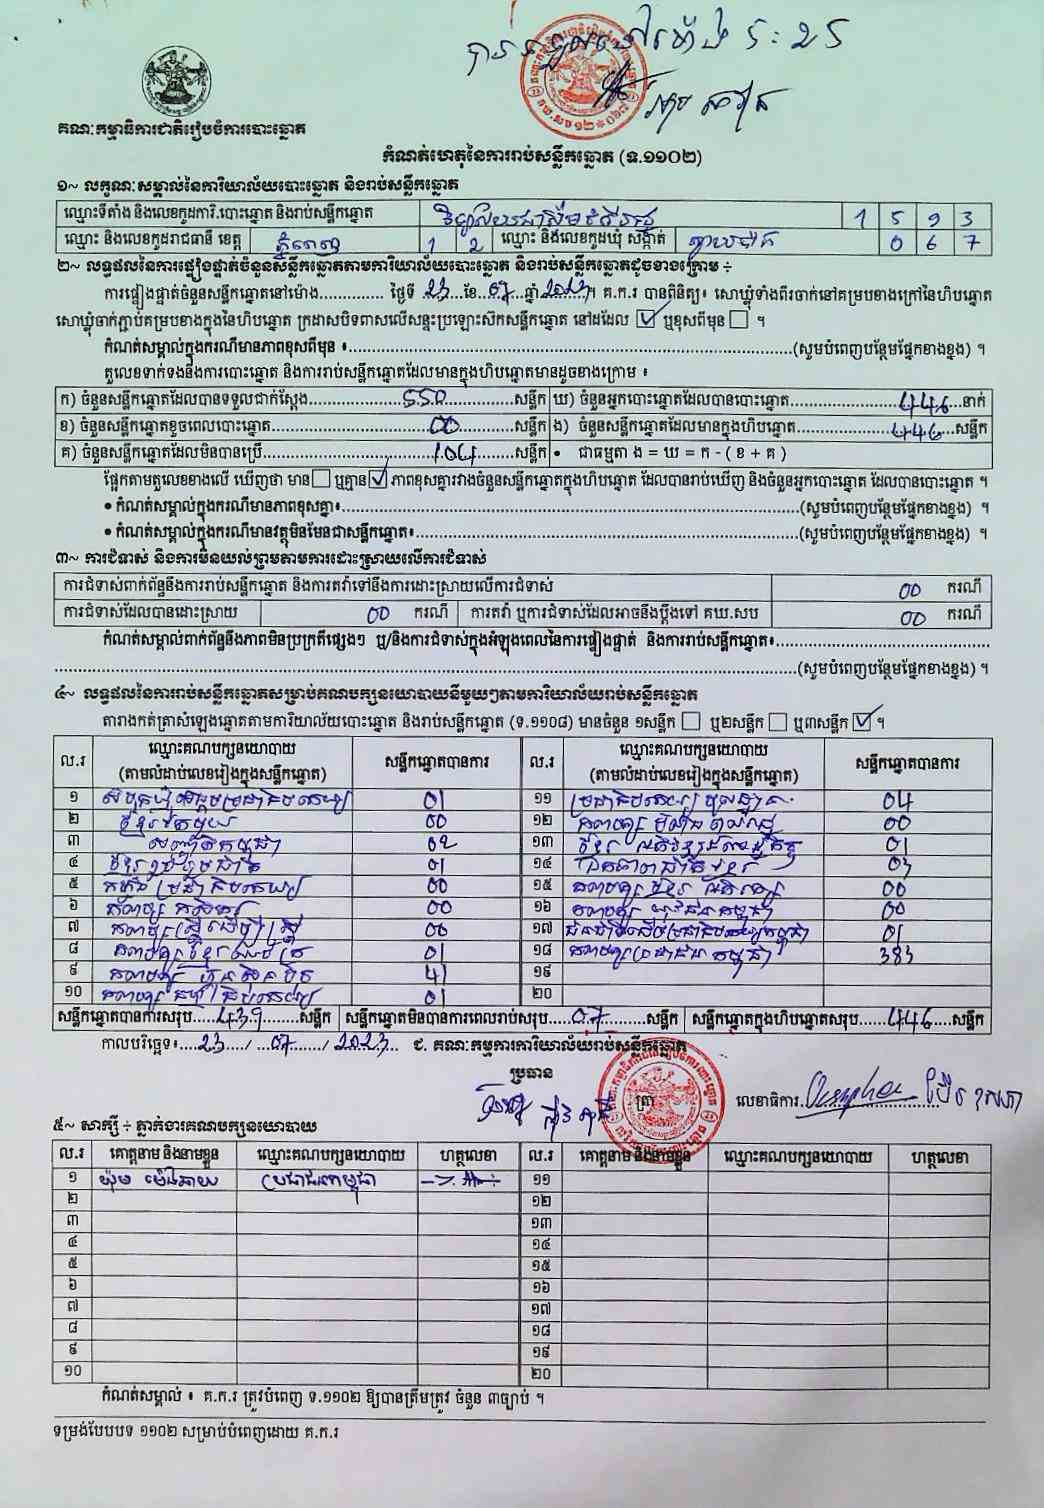 គណៈកម្មាធិការជាតិរៀបចំការបោះឆ្នោត
កំណត់ហេតុនៃការរាប់សន្លឹកឆ្នោត (ទ.១១០២)
១~ លក្ខណៈសម្គាល់នៃការិយាល័យបោះឆ្នោត និងរាប់សន្លឹកឆ្នោត
ឈ្មោះទីតាំង និងលេខកូដការិ.បោះឆ្នោត និងរាប់សន្លឹកឆ្នោត 1 5 9 3
ឈ្មោះ និងលេខកូដរាជធានី ខេត្ត ភ្នំពេញ 1 2 ឈ្មោះ និងលេខកូដឃុំ សង្កាត់ ស្វាយប៉ាក 0 6 7
២~ លទ្ធផលនៃការផ្ទៀងផ្ទាត់ចំនួនសន្លឹកឆ្នោតតាមការិយាល័យបោះឆ្នោត និងរាប់សន្លឹកឆ្នោតដូចខាងក្រោម ÷
ការផ្ទៀងផ្ទាត់ចំនួនសន្លឹកឆ្នោតនៅម៉ោង.............. ថ្ងៃទី 23 ខែ 07 ឆ្នាំ 2023 ។ គ.ក.រ បានពិនិត្យ៖ សោឃ្លុំទាំងពីរចាក់នៅគម្របខាងក្រៅនៃហិបឆ្នោត
សោឃ្លុំចាក់ភ្ជាប់គម្របខាងក្នុងនៃហិបឆ្នោត ក្រដាសបិទពាសលើសន្ទះប្រឡោះសិកសន្លឹកឆ្នោត នៅដដែល ☑ ឬខុសពីមុន ☐ ។
កំណត់សម្គាល់ក្នុងករណីមានភាពខុសពីមុន ៖..........(សូមបំពេញបន្ថែមផ្នែកខាងខ្នង) ។
តួលេខទាក់ទងនឹងការបោះឆ្នោត និងការរាប់សន្លឹកឆ្នោតដែលមានក្នុងហិបឆ្នោតមានដូចខាងក្រោម ៖
ក) ចំនួនសន្លឹកឆ្នោតដែលបានទទួលជាក់ស្តែង 550 សន្លឹក ឃ) ចំនួនអ្នកបោះឆ្នោតដែលបានបោះឆ្នោត 446 នាក់
ខ) ចំនួនសន្លឹកឆ្នោតខូចពេលបោះឆ្នោត 00 សន្លឹក ង) ចំនួនសន្លឹកឆ្នោតដែលមានក្នុងហិបឆ្នោត 446 សន្លឹក
គ) ចំនួនសន្លឹកឆ្នោតដែលមិនបានប្រើ 104 សន្លឹក • ជាធម្មតា ង = ឃ = ក - ( ខ + គ )
ផ្អែកតាមតួលេខខាងលើ ឃើញថា មាន ☐ ឬគ្មាន ☑ ភាពខុសគ្នារវាងចំនួនសន្លឹកឆ្នោតក្នុងហិបឆ្នោត ដែលបានរាប់ឃើញ និងចំនួនអ្នកបោះឆ្នោត ដែលបានបោះឆ្នោត ។
• កំណត់សម្គាល់ក្នុងករណីមានភាពខុសគ្នា៖..........(សូមបំពេញបន្ថែមផ្នែកខាងខ្នង) ។
• កំណត់សម្គាល់ក្នុងករណីមានវត្ថុមិនមែនជាសន្លឹកឆ្នោត៖..........(សូមបំពេញបន្ថែមផ្នែកខាងខ្នង) ។
៣~ ការជំទាស់ និងការមិនយល់ព្រមតាមការដោះស្រាយលើការជំទាស់
ការជំទាស់ពាក់ព័ន្ធនឹងការរាប់សន្លឹកឆ្នោត និងការតវ៉ាទៅនឹងការដោះស្រាយលើការជំទាស់ 00 ករណី
ការជំទាស់ដែលបានដោះស្រាយ 00 ករណី ការតវ៉ា ឬការជំទាស់ដែលអាចនឹងប្តឹងទៅ គឃ.សប 00 ករណី
កំណត់សម្គាល់ពាក់ព័ន្ធនឹងភាពមិនប្រក្រតីផ្សេងៗ ឬ/និងការជំទាស់ក្នុងអំឡុងពេលនៃការផ្ទៀងផ្ទាត់ និងការរាប់សន្លឹកឆ្នោត៖..........
..........(សូមបំពេញបន្ថែមផ្នែកខាងខ្នង) ។
៤~ លទ្ធផលនៃការរាប់សន្លឹកឆ្នោតសម្រាប់គណបក្សនយោបាយនីមួយៗតាមការិយាល័យរាប់សន្លឹកឆ្នោត
តារាងកត់ត្រាសំឡេងឆ្នោតតាមការិយាល័យបោះឆ្នោត និងរាប់សន្លឹកឆ្នោត (ទ.១១០៨) មានចំនួន ១សន្លឹក ☐ ឬ២សន្លឹក ☐ ឬ៣សន្លឹក ☑ ។
ល.រ ឈ្មោះគណបក្សនយោបាយ (តាមលំដាប់លេខរៀងក្នុងសន្លឹកឆ្នោត) សន្លឹកឆ្នោតបានការ ល.រ ឈ្មោះគណបក្សនយោបាយ (តាមលំដាប់លេខរៀងក្នុងសន្លឹកឆ្នោត) សន្លឹកឆ្នោតបានការ
១ 01 ១១ 04
២ ខ្មែរតែមួយ 00 ១២ 00
៣ 02 ១៣ 01
៤ ខ្មែររួបរួមជាតិ 01 ១៤ 03
៥ 00 ១៥ 00
៦ 00 ១៦ គណបក្ស យុវជនកម្ពុជា 00
៧ 00 ១៧ 01
៨ 01 ១៨ គណបក្សប្រជាជនកម្ពុជា 383
៩ គណបក្ស ហ្វ៊ុនស៊ិនប៉ិច 41 ១៩
១០ 01 ២០
សន្លឹកឆ្នោតបានការសរុប 439 សន្លឹក សន្លឹកឆ្នោតមិនបានការពេលរាប់សរុប 07 សន្លឹក សន្លឹកឆ្នោតក្នុងហិបឆ្នោតសរុប 446 សន្លឹក
កាលបរិច្ឆេទ៖ 23 / 07 / 2023 ជ. គណៈកម្មការការិយាល័យរាប់សន្លឹកឆ្នោត
ប្រធាន
ត្រា
លេខាធិការ
៥~ សាក្សី ÷ ភ្នាក់ងារគណបក្សនយោបាយ
ល.រ គោត្តនាម និងនាមខ្លួន ឈ្មោះគណបក្សនយោបាយ ហត្ថលេខា ល.រ គោត្តនាម និងនាមខ្លួន ឈ្មោះគណបក្សនយោបាយ ហត្ថលេខា
១ ប្រជាជនកម្ពុជា ១១
២ ១២
៣ ១៣
៤ ១៤
៥ ១៥
៦ ១៦
៧ ១៧
៨ ១៨
៩ ១៩
១០ ២០
កំណត់សម្គាល់ ៖ គ.ក.រ ត្រូវបំពេញ ទ.១១០២ ឱ្យបានត្រឹមត្រូវ ចំនួន ៣ច្បាប់ ។
ទម្រង់បែបបទ ១១០២ សម្រាប់បំពេញដោយ គ.ក.រ